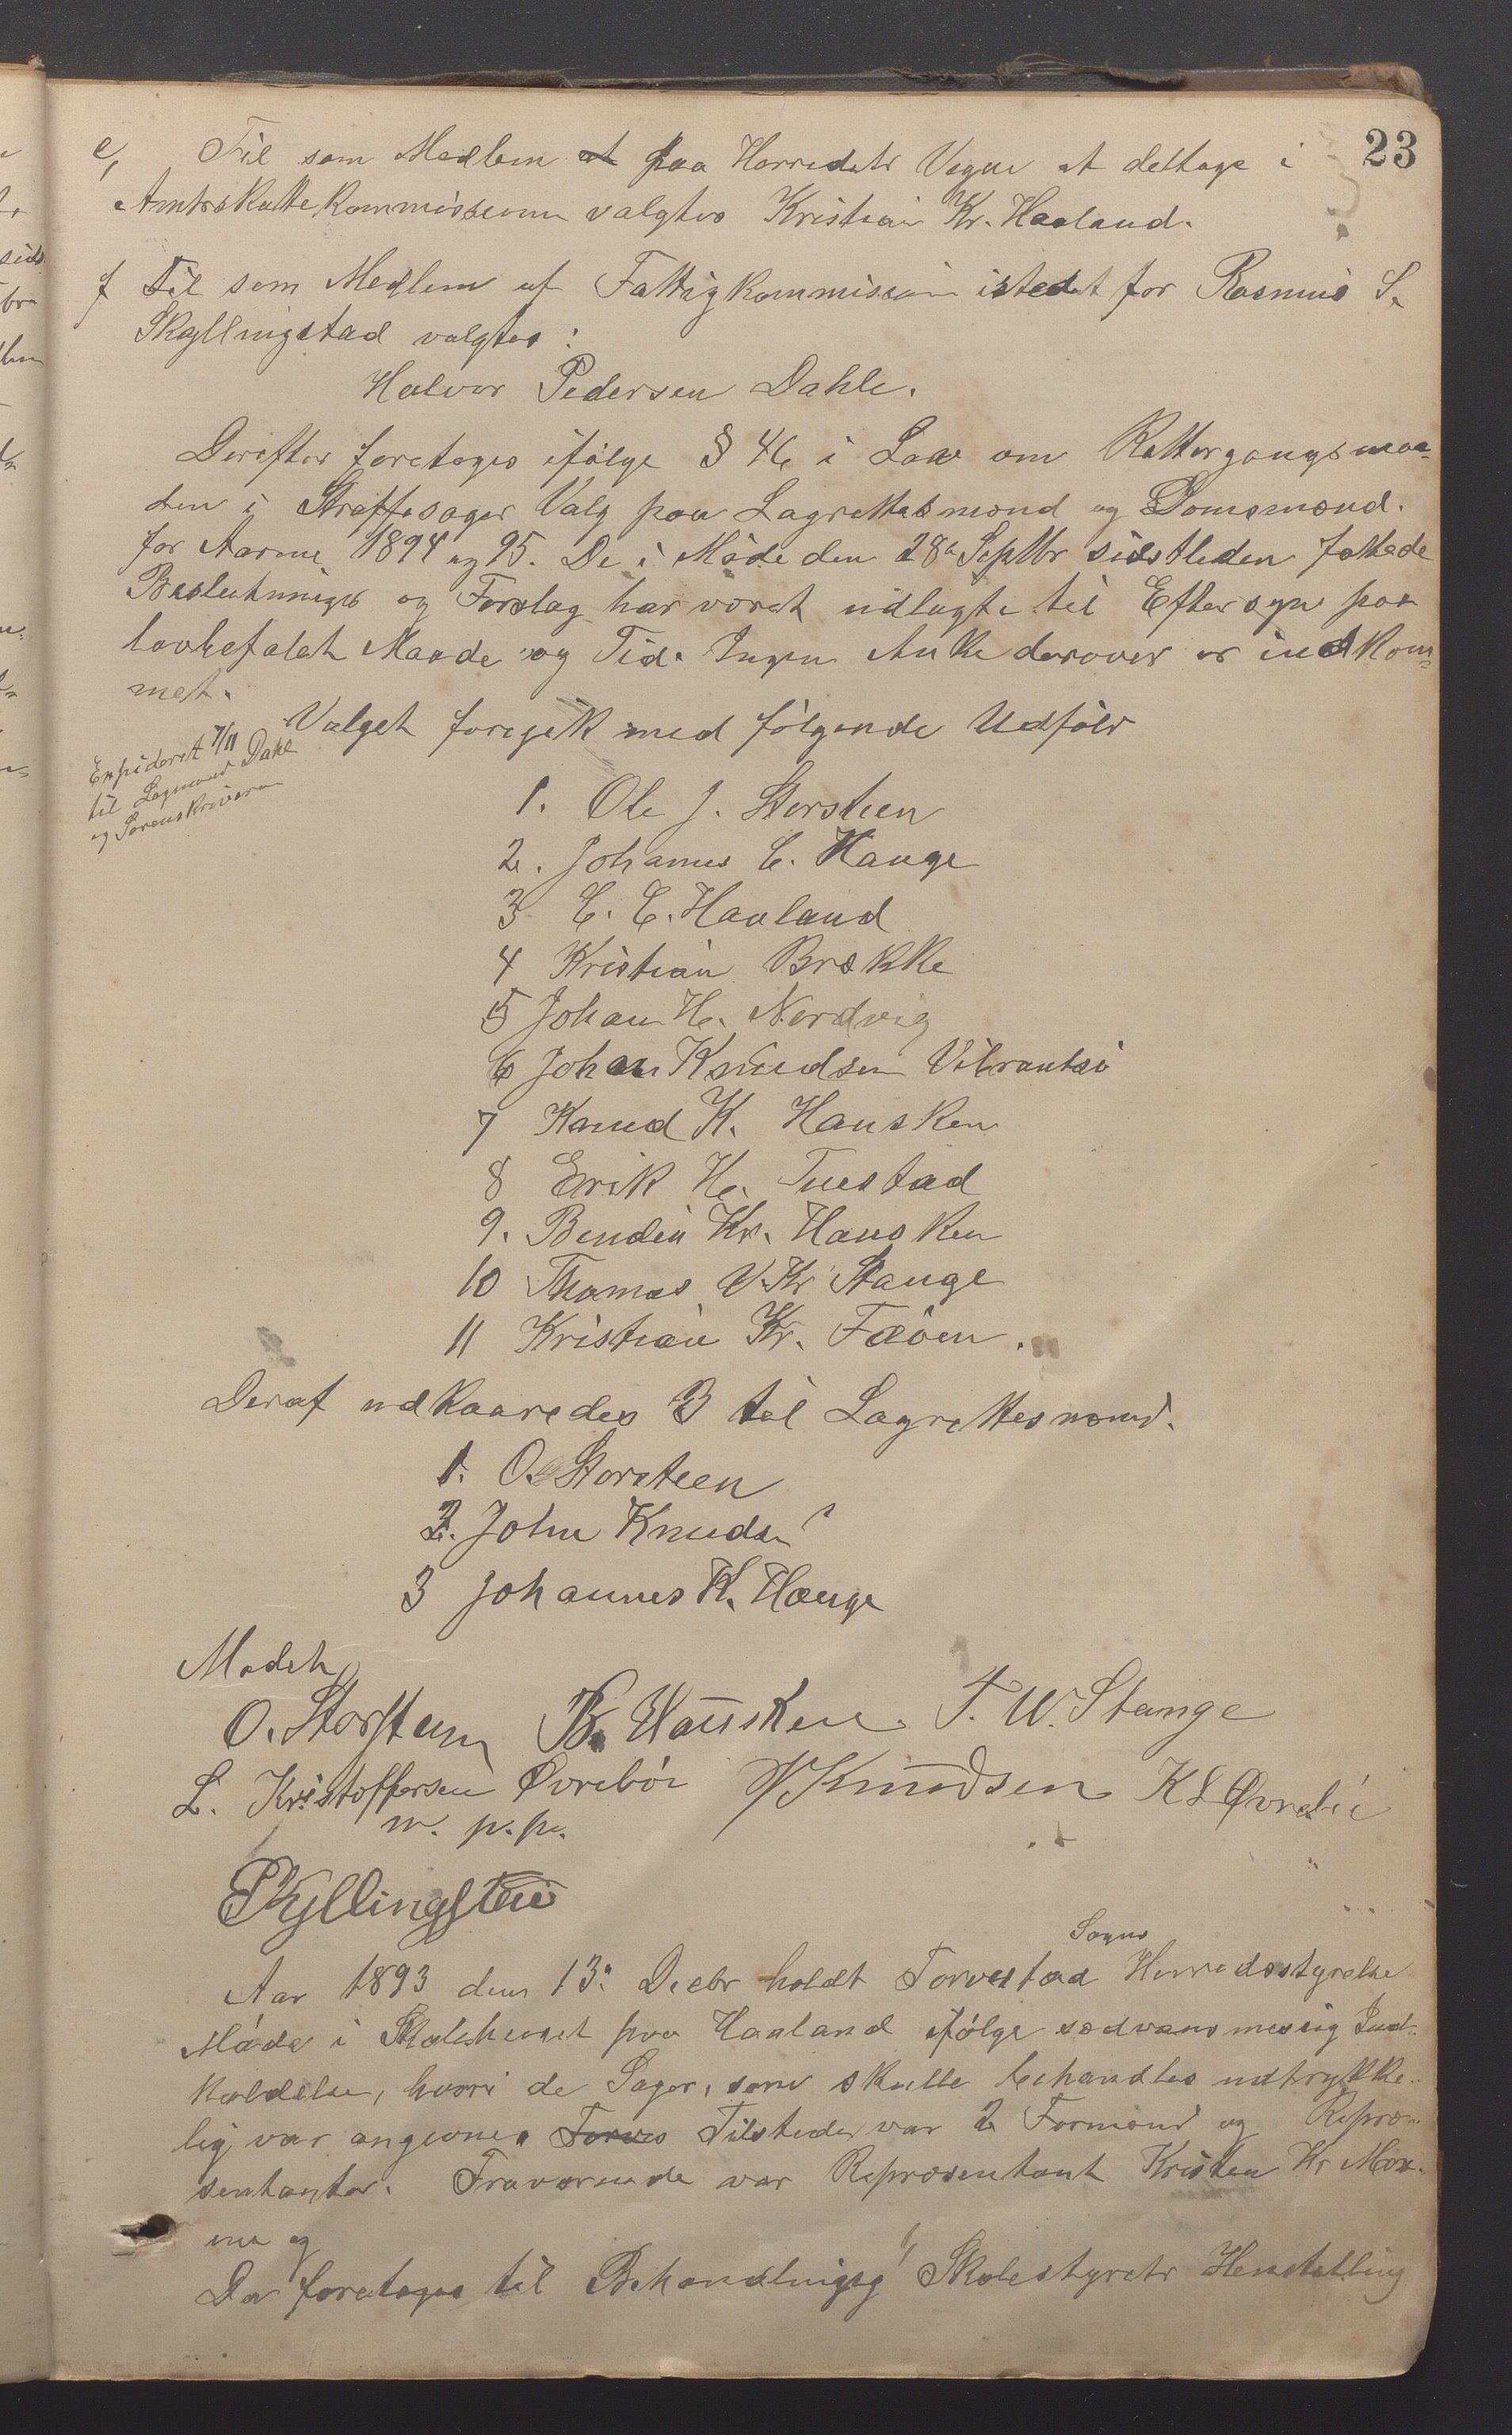 23
e, Til som Medlem at paa Herredets Vegne at deltage i
Amtsskattekommissionen valgtes Kristian Kr. Haaland.
f Til som Medlem af Fattigkommission istedet for Rasmus S.
Skyllingstad valgtes:
Halvor Pedersen Dahle.
Derefter foretoges ifølge § 46 i Lov om Rettergangsmaa-
den i Straffesager Valg paa Lagrettesmænd og Domsmænd.
for Aarene 1894 og 95. De i Møde den 28de Septbr sidstleden fattede
Beslutninger og Forslag har været udlagte til Eftersyn paa
lovbefalet Maade og Tid. Ingen Anke derover er indkom-
met.
Valget foregik med følgende Udfald
Expideret 7/11
til Lagmand Dahl
og Sorenskriveren
1. Ole J. Storsteen
2. Johannes C. Hauge
3 C. C. Haaland
4 Kristian Brekke
5 Johan H. Nordvig
6 Johan Knudsen Vibrantsø
7 Knud K. Hausken
8 Erik H. Tuestad
9. Bendix Kr. Hausken
10 Thomas V. Kr Stange
11 Kristian Kr. Fæøen.
Deraf udkaaredes 3 til Lagrettesmænd.
1. O. Storsteen
2. John Knudsen
3 Johannes K. Hauge
Mødet
O. Storsteen B. Hausken. T. W. Stange
L. Kristoffersen Øvrebø J Knudsen K L Øvrebø
m. p. p.
Aar 1893 den 13. Decbr holdt Torvestad Sogns Herredsstyrelse
Møde i Skolehuset paa Haaland ifølge sædvansmessig Ind-
kaldelse, hvori de Sager, som skulle behandles udtrykke-
lig var angivne. Torves Tilstede var 2 Formænd og Repræ-
sentanter. Fraværende var Repræsentant Kristen Kr Mox-
ma og
Da foretoges til Behandling 1, Skolestyrets Henstilling